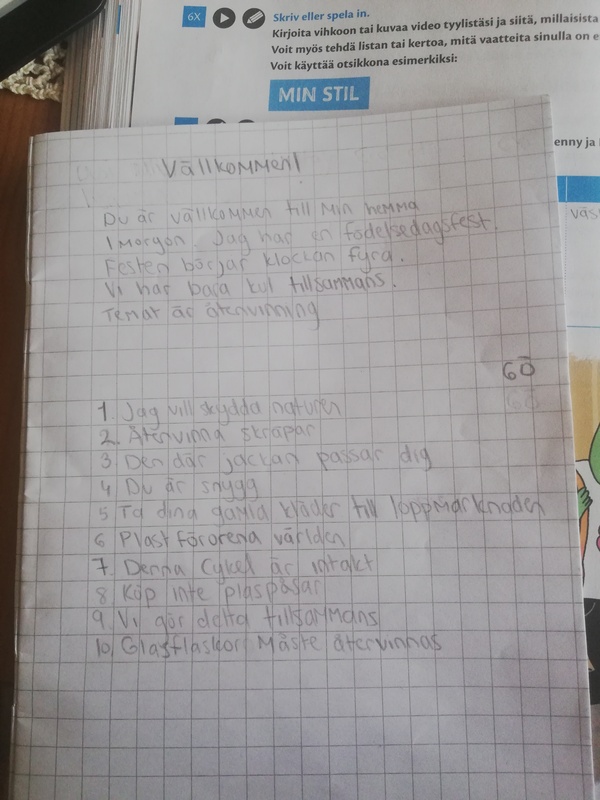 6X
Skriv eller spela in.
Kirjoita vihkoon tai kuvaa video tyylistäsi ja siitä, millaisista
Voit myös tehdä listan tai kertoa, mitä vaatteita sinulla on
Voit käyttää otsikkona esimerkiksi:
MIN STIL
enny ja
väs
Vällkommen!
Du är vällkommen till min hemma
I morgon. Jag har en födelsedagsfest.
Festen börjar klockan fyra.
Vi har bara kul tillsammans.
Temat är återvinning
60
1. Jag vill skydda naturen
2. Återvinna skräpar
3. Den där jackan passar dig
4 Du är snygg
5 Ta dina gamla kläder till loppmarknaden
6 Plast förorena världen
7. Denna cykel är intakt
8 Köp inte plaspåsar
9. Vi gör detta tillsammans
10. Glasflaskor måste återvinnas